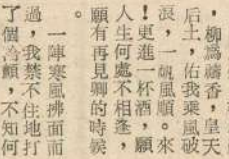 ，柳為禱香，皇天
后土，佑我乘風破
浪，一帆風順。來
！更進一杯酒，願
人生何處不相逢，
願有再見卿的時候
。
一陣寒風拂面而
過，我禁不住地打
了個寒顫，不知何